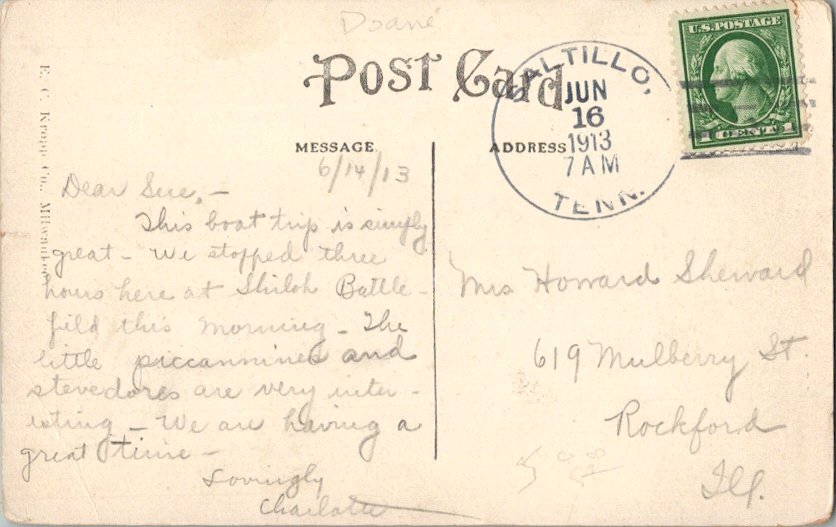 Doane
POST CARD
SALTILLO,
JUN
16
1913
7 AM
TENN.
U.S. POSTAGE
1 CENT 1
E. C. Kropp Co., Milwaukee
MESSAGE
ADDRESS
6/14/13
Dear Sue,-
This boat trip is simply
great - We stopped three
hours here at Shiloh Battle-
field this morning - The
little piccannines and
stevedores are very inter-
esting - We are having a
great time -
Lovingly
Charlotte
Mrs Howard Sherward
619 Mulberry St.
Rockford
Ill.